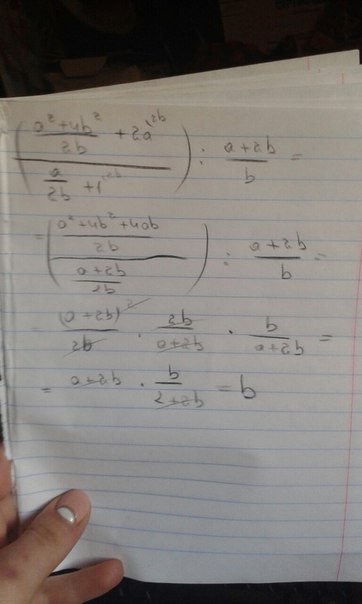 ((a²+4b²)/(2b) + 2a^(2b)) / (a/(2b) + 1^(2b)) : (a+2b)/b =
= ((a²+4b²+4ab)/(2b)) / ((a+2b)/(2b)) : (a+2b)/b =
(a+2b)²/(2b) · 2b/(a+2b) · b/(a+2b) =
= a+2b · b/(a+2b) = b